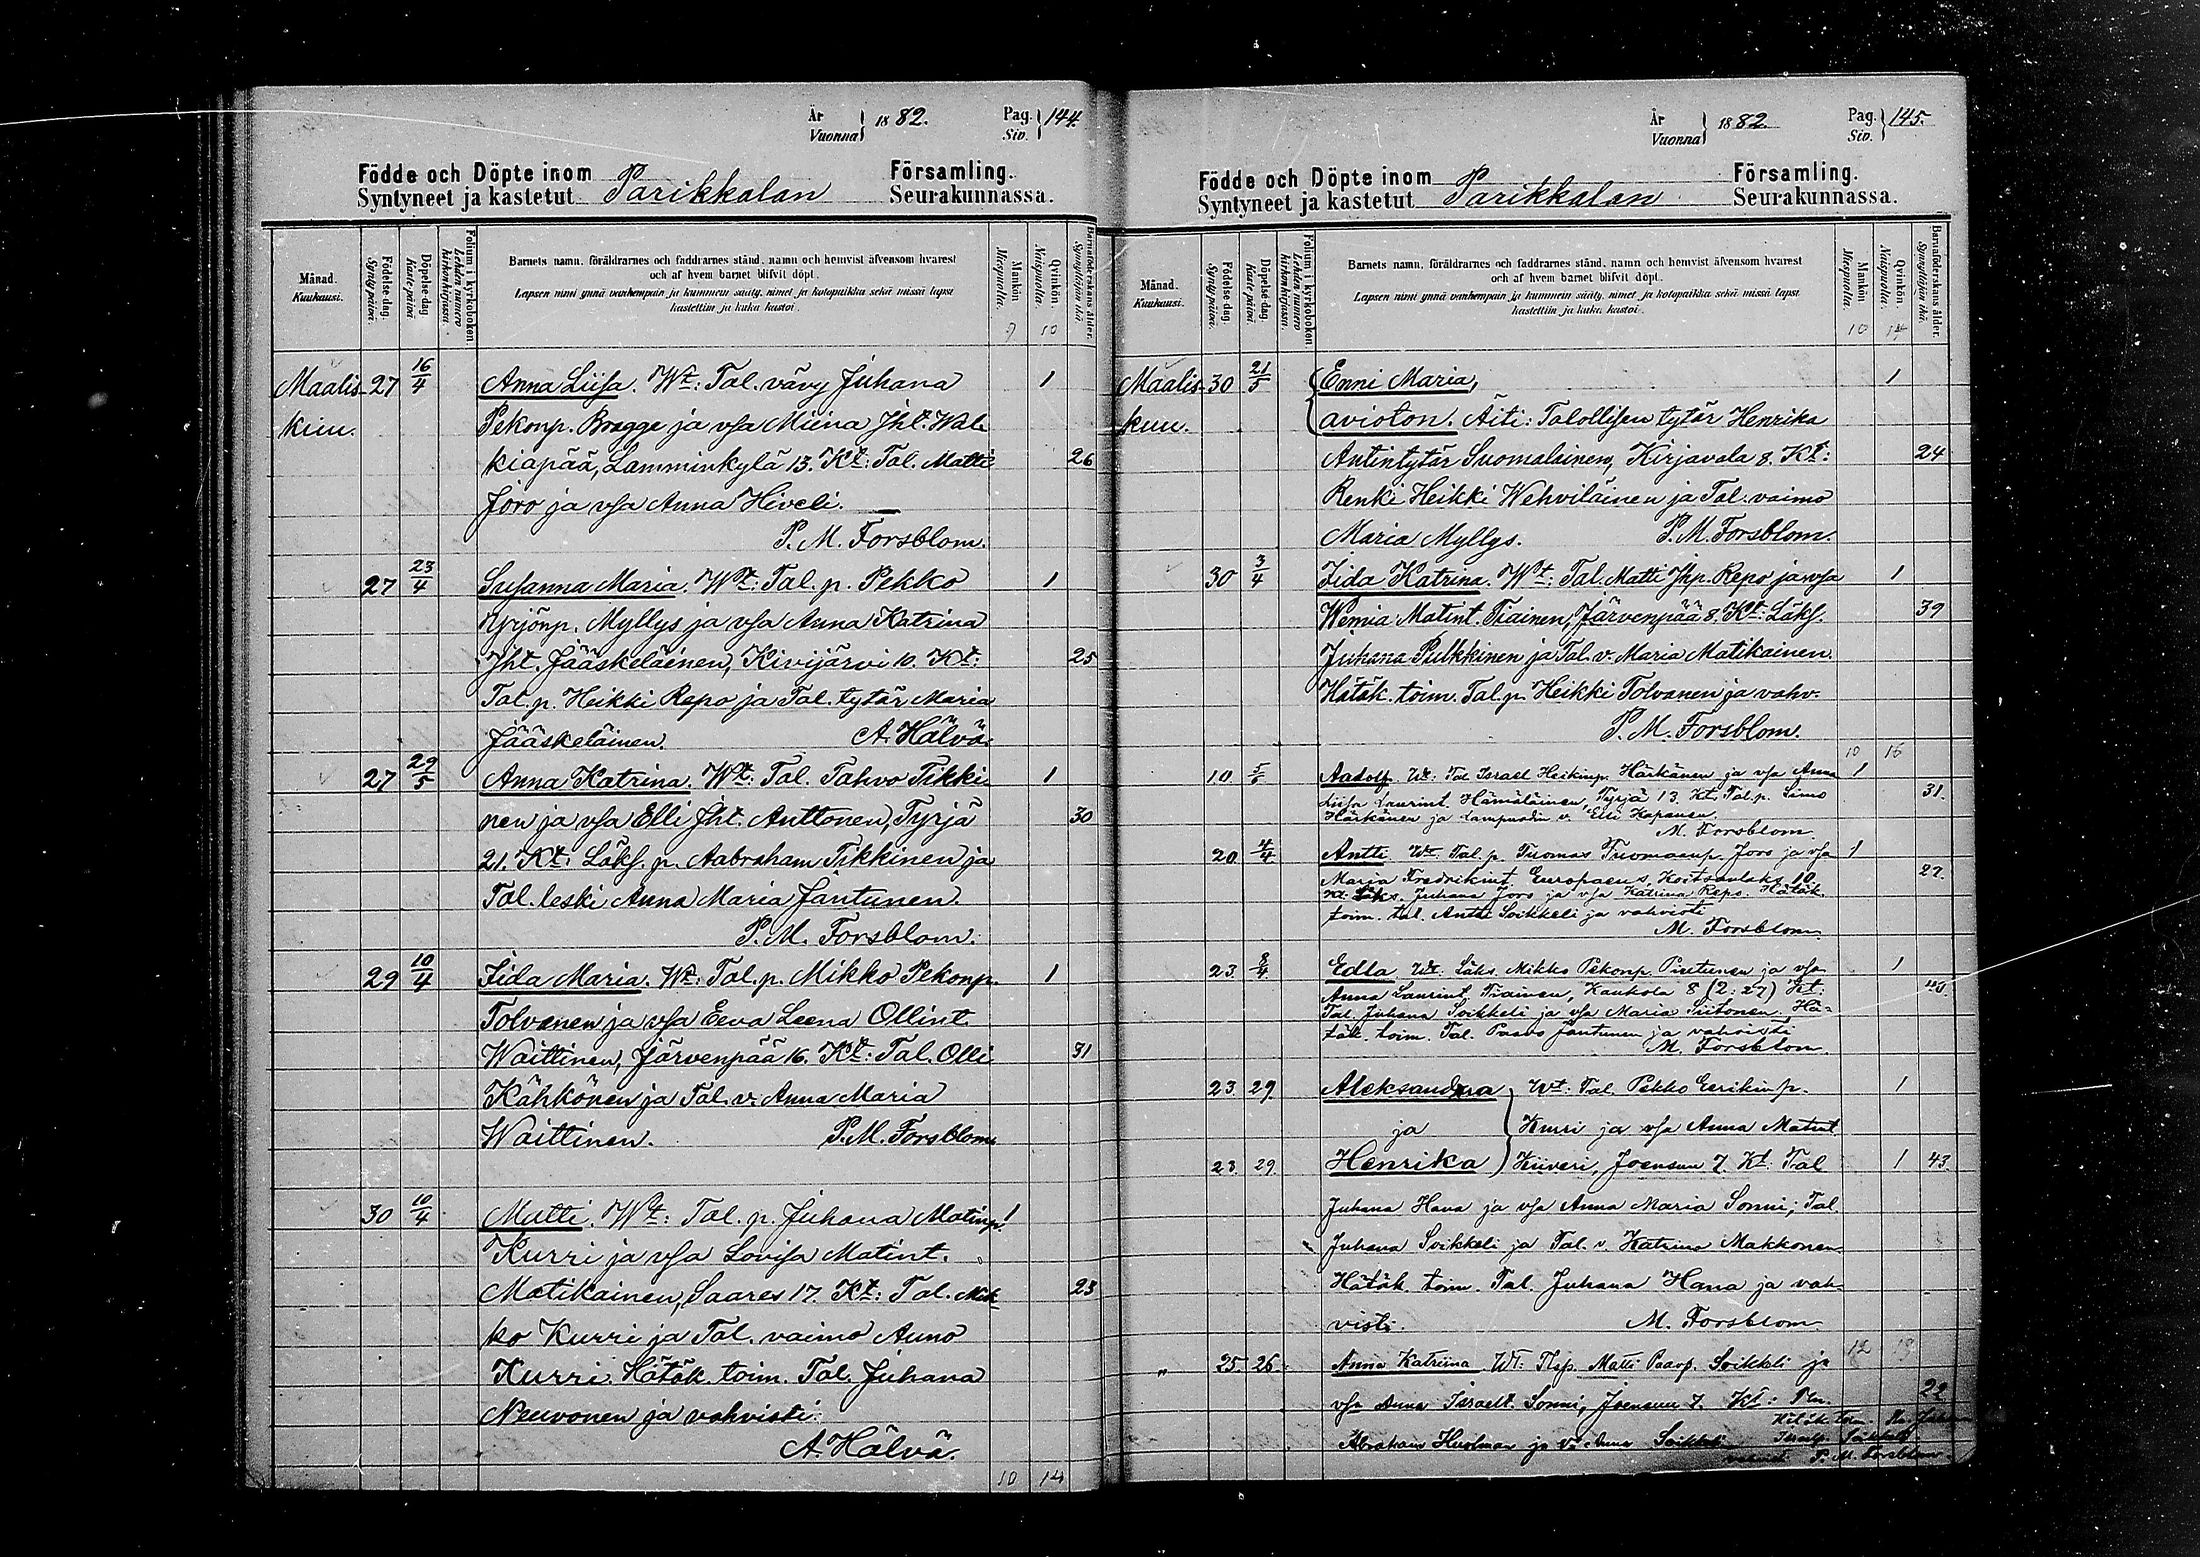 År
Vuonna } 1882. Pag. Siv. } 144.
Födde och Döpte inom Församling.
Syntyneet ja kastetut Parikkalan Seurakunnassa.
Månad. Kuukausi.
Födelse-dag. Syntypäivä.
Döpelse-dag Kaste-päivä
Folium i kyrkoboken Lehden numero kirkonkirjassa.
Barnets namn, föräldrarnes och faddrarnes stånd, namn och hemvist äfvensom hvarest
och af hvem barnet blifvit döpt.
Lapsen nimi ynnä vanhempain ja kummein sääty, nimet ja kotopaikka sekä missä lapsi
kastettiin ja kuka kastoi.
Mankön Miespuolia.
Qvinkön Naispuolia.
Barnaföderskans ålder. Synnyttäjän ikä.
7 10
Maalis- 27 16/4 Anna Liisa. Wt: Tal. vävy Juhana 1
kuu. Pekonp. Bragge ja vsa Miina Jht. Wal-
kiapää, Lamminkylä 13. Kt: Tal. Matti 26
Joro ja vsa Anna Hiveli.
P. M. Forsblom.
27 23/4 Susanna Maria. Wt: Tal. p. Pekko 1
Yrjönp. Myllys ja vsa Anna Katrina
Jht. Jääskeläinen, Kivijärvi 10. Kt: 25
Tal. p. Heikki Repo ja Tal. tytär Maria
Jääskeläinen. A. Hälvä.
27 29/5 Anna Katrina. Wt: Tal. Tahvo Tikki- 1
nen ja vsa Elli Jht. Anttonen, Tyrjä 30
21. Kt: Läks. p. Aabraham Tikkinen ja
Tal. leski Anna Maria Jantunen.
P. M. Forsblom.
29 10/4 Iida Maria. Wt: Tal. p. Mikko Pekonp. 1
Tolvanen ja vsa Eeva Leena Ollint.
Waittinen, Järvenpää 16. Kt: Tal. Olli 31
Kähkönen ja Tal. v. Anna Maria
Waittinen. P. M. Forsblom
30 10/4 Matti. Wt: Tal. p. Juhana Matinp. 1
Kurri ja vsa Lovisa Matint.
Matikainen, Saares 17. Kt: Tal. Mik- 23
ko Kurri ja Tal. vaimo Anna
Kurri. Hätäk. toim. Tal. Juhana
Neuvonen ja vahvisti
A. Hälvä.
10 14
År
Vuonna } 1882. Pag. Siv. } 145.
Födde och Döpte inom Församling.
Syntyneet ja kastetut Parikkalan Seurakunnassa.
Månad. Kuukausi.
Födelse-dag. Syntypäivä.
Döpelse-dag Kaste-päivä.
Folium i kyrkoboken Lehden numero kirkonkirjassa.
Barnets namn, föräldrarnes och faddrarnes stånd, namn och hemvist äfvensom hvarest
och af hvem barnet blifvit döpt.
Lapsen nimi ynnä vanhempain ja kummein sääty, nimet ja kotopaikka sekä missä lapsi
kastettiin ja kuka kastoi.
Mankön Miespuolia.
Qvinkön Naispuolia.
Barnaföderskans ålder. Synnyttäjän ikä.
10 14
Maalis- 30 21/5 Enni Maria, 1
kuu. avioton. Äiti: Talollisen tytär Henrika
Antintytär Suomalainen, Kirjavala 8. Kt: 24
Renki Heikki Wehviläinen ja Tal. vaimo
Maria Myllys. P. M. Forsblom.
30 3/4 Iida Katrina. Wt: Tal. Matti Jhp. Repo ja vsa 1
Wemia Matint. Tiainen, Järvenpää 8. Kt: Läks. 39
Juhana Pulkkinen ja Tal. v. Maria Matikainen.
Hätäk. toim. Tal. p. Heikki Tolvanen ja vahv.
P. M. Forsblom.
10 16
10 5/6 Aadolf. Wt: Tal Israel Heikinp. Härkänen ja vsa Anna 1
Liisa Laurint. Hämäläinen, Tyrjä 13. Kt. Tal. p. Simo 31.
Härkänen ja lampuodin v. Elli Kopanen
M. Forsblom
20 4/4 Antti Wt. Tal. p. Tuomas Tuomaanp. Joro ja vsa 1
Maria Fredrikint. Europaeus, Koitsanlaks 10. 27.
Kt. Läks. Juhana Joro ja vsa Katrina Repo. Hätäk.
toim. tal. Antti Soikkeli ja vahvisti
M. Forsblom.
23 8/4 Edla Wt: Läks. Mikko Pekonp. Pirttunen ja vsa 1
Anna Laurint Tiainen, Kaukola 8 (2:27) Kt. 40
Tal. Juhana Soikkeli ja vsa Maria Siitonen. Hä-
täk. toim. Tal. Paavo Jantunen ja vahvisti
M. Forsblom.
23. 29 Aleksandra } Wt: Tal. Pekko Eerikinp. 1
ja Kurri ja vsa Anna Matint
23 29. Henrika Kiiveri, Joensuu 7. Kt: Tal 1 43.
Juhana Hana ja vsa Anna Maria Sonni; Tal.
Juhana Soikkeli ja Tal. v. Katrina Makkonen.
Hätäk. toim. Tal. Juhana Hana ja vah-
visti. M. Forsblom
12 19
„ 25. 26. Anna Katriina Wt: Matti Paavp. Soikkeli ja
vsa Anna Israelt. Sonni, Joensuu 7. Kt: 22
Abraham ja v. Anna Soikkeli
P. M. Forsblom